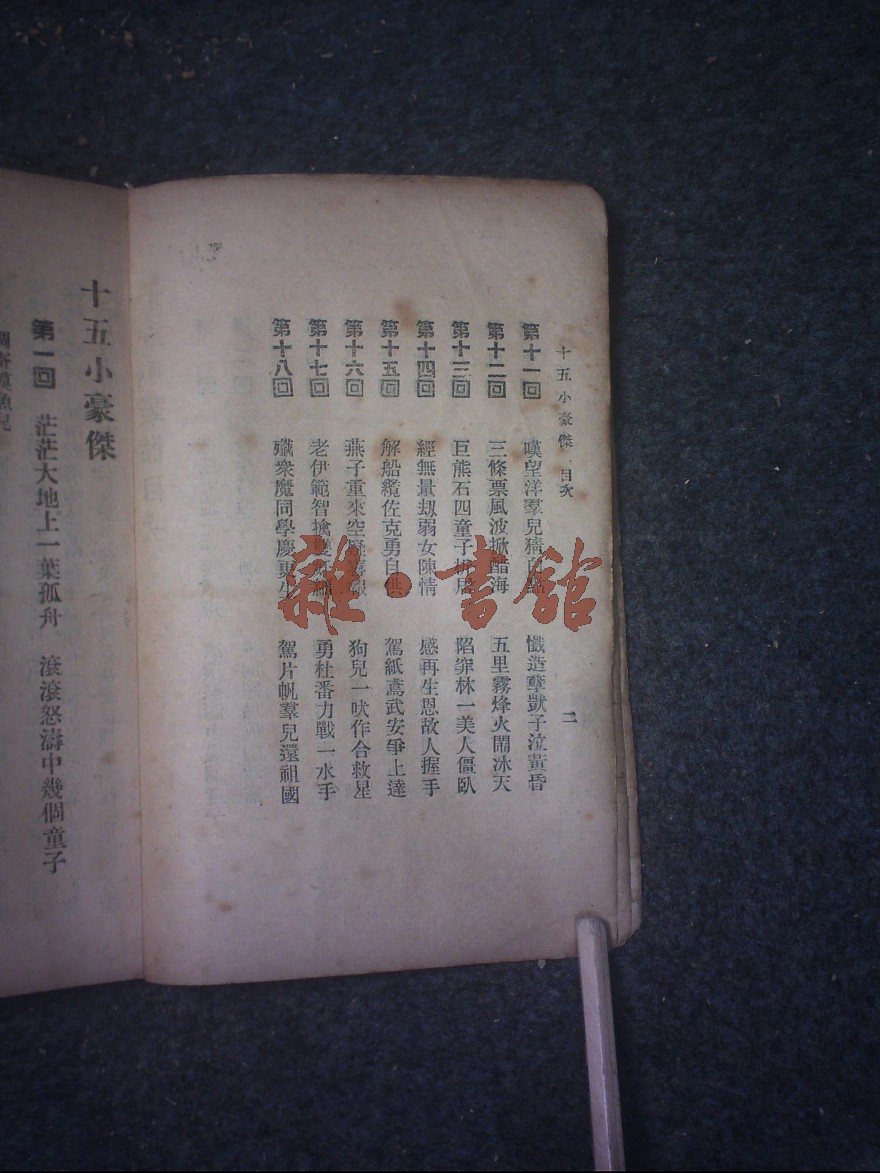 十五小豪傑 目次
二
第十一回 嘆望洋羣兒猜 懺造孽獃子泣黃昏
第十二回 三條票風波掀 海 五里霧烽火鬧冰天
第十三回 巨熊石四童子 居 陷穽林一美人僵臥
第十四回 經無量刼弱女陳情 感再生恩故人握手
第十五回 解船纜佐克勇自供 駕紙鳶武安爭上達
第十六回 燕子重來空 狗兒一吠作合救星
第十七回 老伊範智擒雙 勇杜番力戰一水手
第十八回 殲衆魔同學慶更生 駕片帆羣兒還祖國
十五小豪傑
第一回 茫茫大地上一葉孤舟 滾滾怒濤中幾個童子
雜·書館